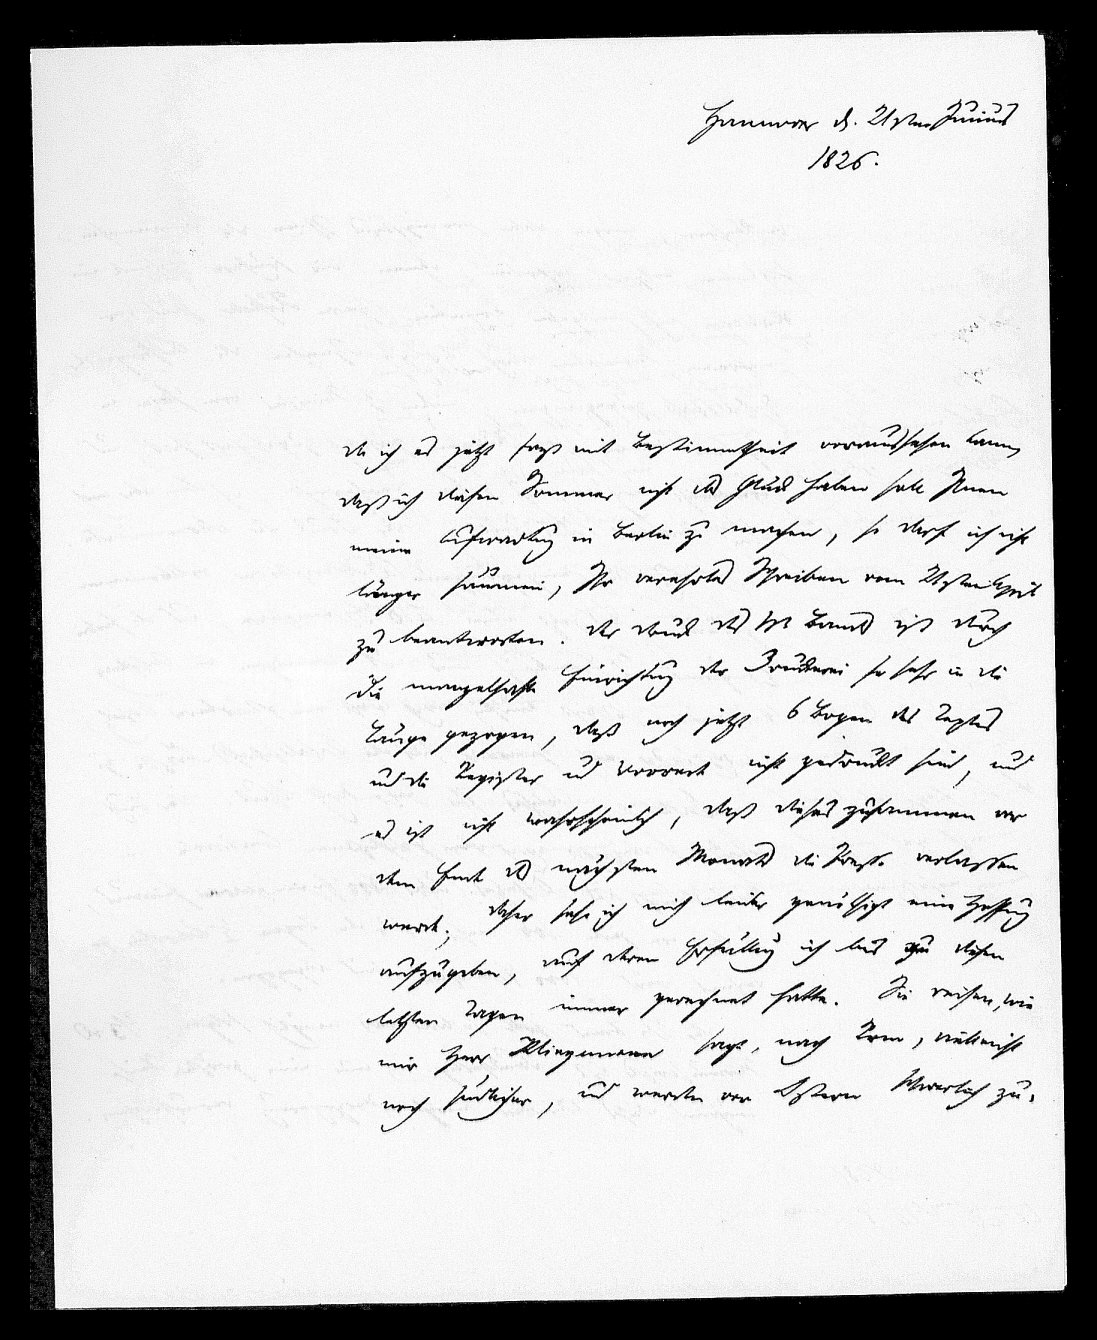 Hannover d. 21sten Junius
1826.
Da ich es jetzt fast mit Bestimmtheit voraussehen kann,
daß ich diesen Sommer nicht das Glück haben soll Ihnen
meine Aufwartung in Berlin zu machen, so darf ich nicht
länger säumen, Ihr verehrtes Schreiben vom 21sten April
zu beantworten. Der Druck des Bands ist durch
die mangelhafte Einrichtung der Druckerei so sehr in die
Länge gezogen, daß noch jetzt 6 Bogen des Textes
und die Register und Vorwort nicht gedruckt sind, und
es ist nicht wahrscheinlich, daß dieses zusammen vor
dem Ende des nächsten Monats die Presse verlassen
werde; daher sehe ich mich leider genöthigt eine Hoffnung
aufzugeben, auf deren Erfüllung ich bis zu diesen
letzten Tagen immer gerechnet hatte. Sie reisen, wie
mir Herr sagt, nach Rom, vielleicht
noch südlicher, und werden vor Ostern schwerlich zu-